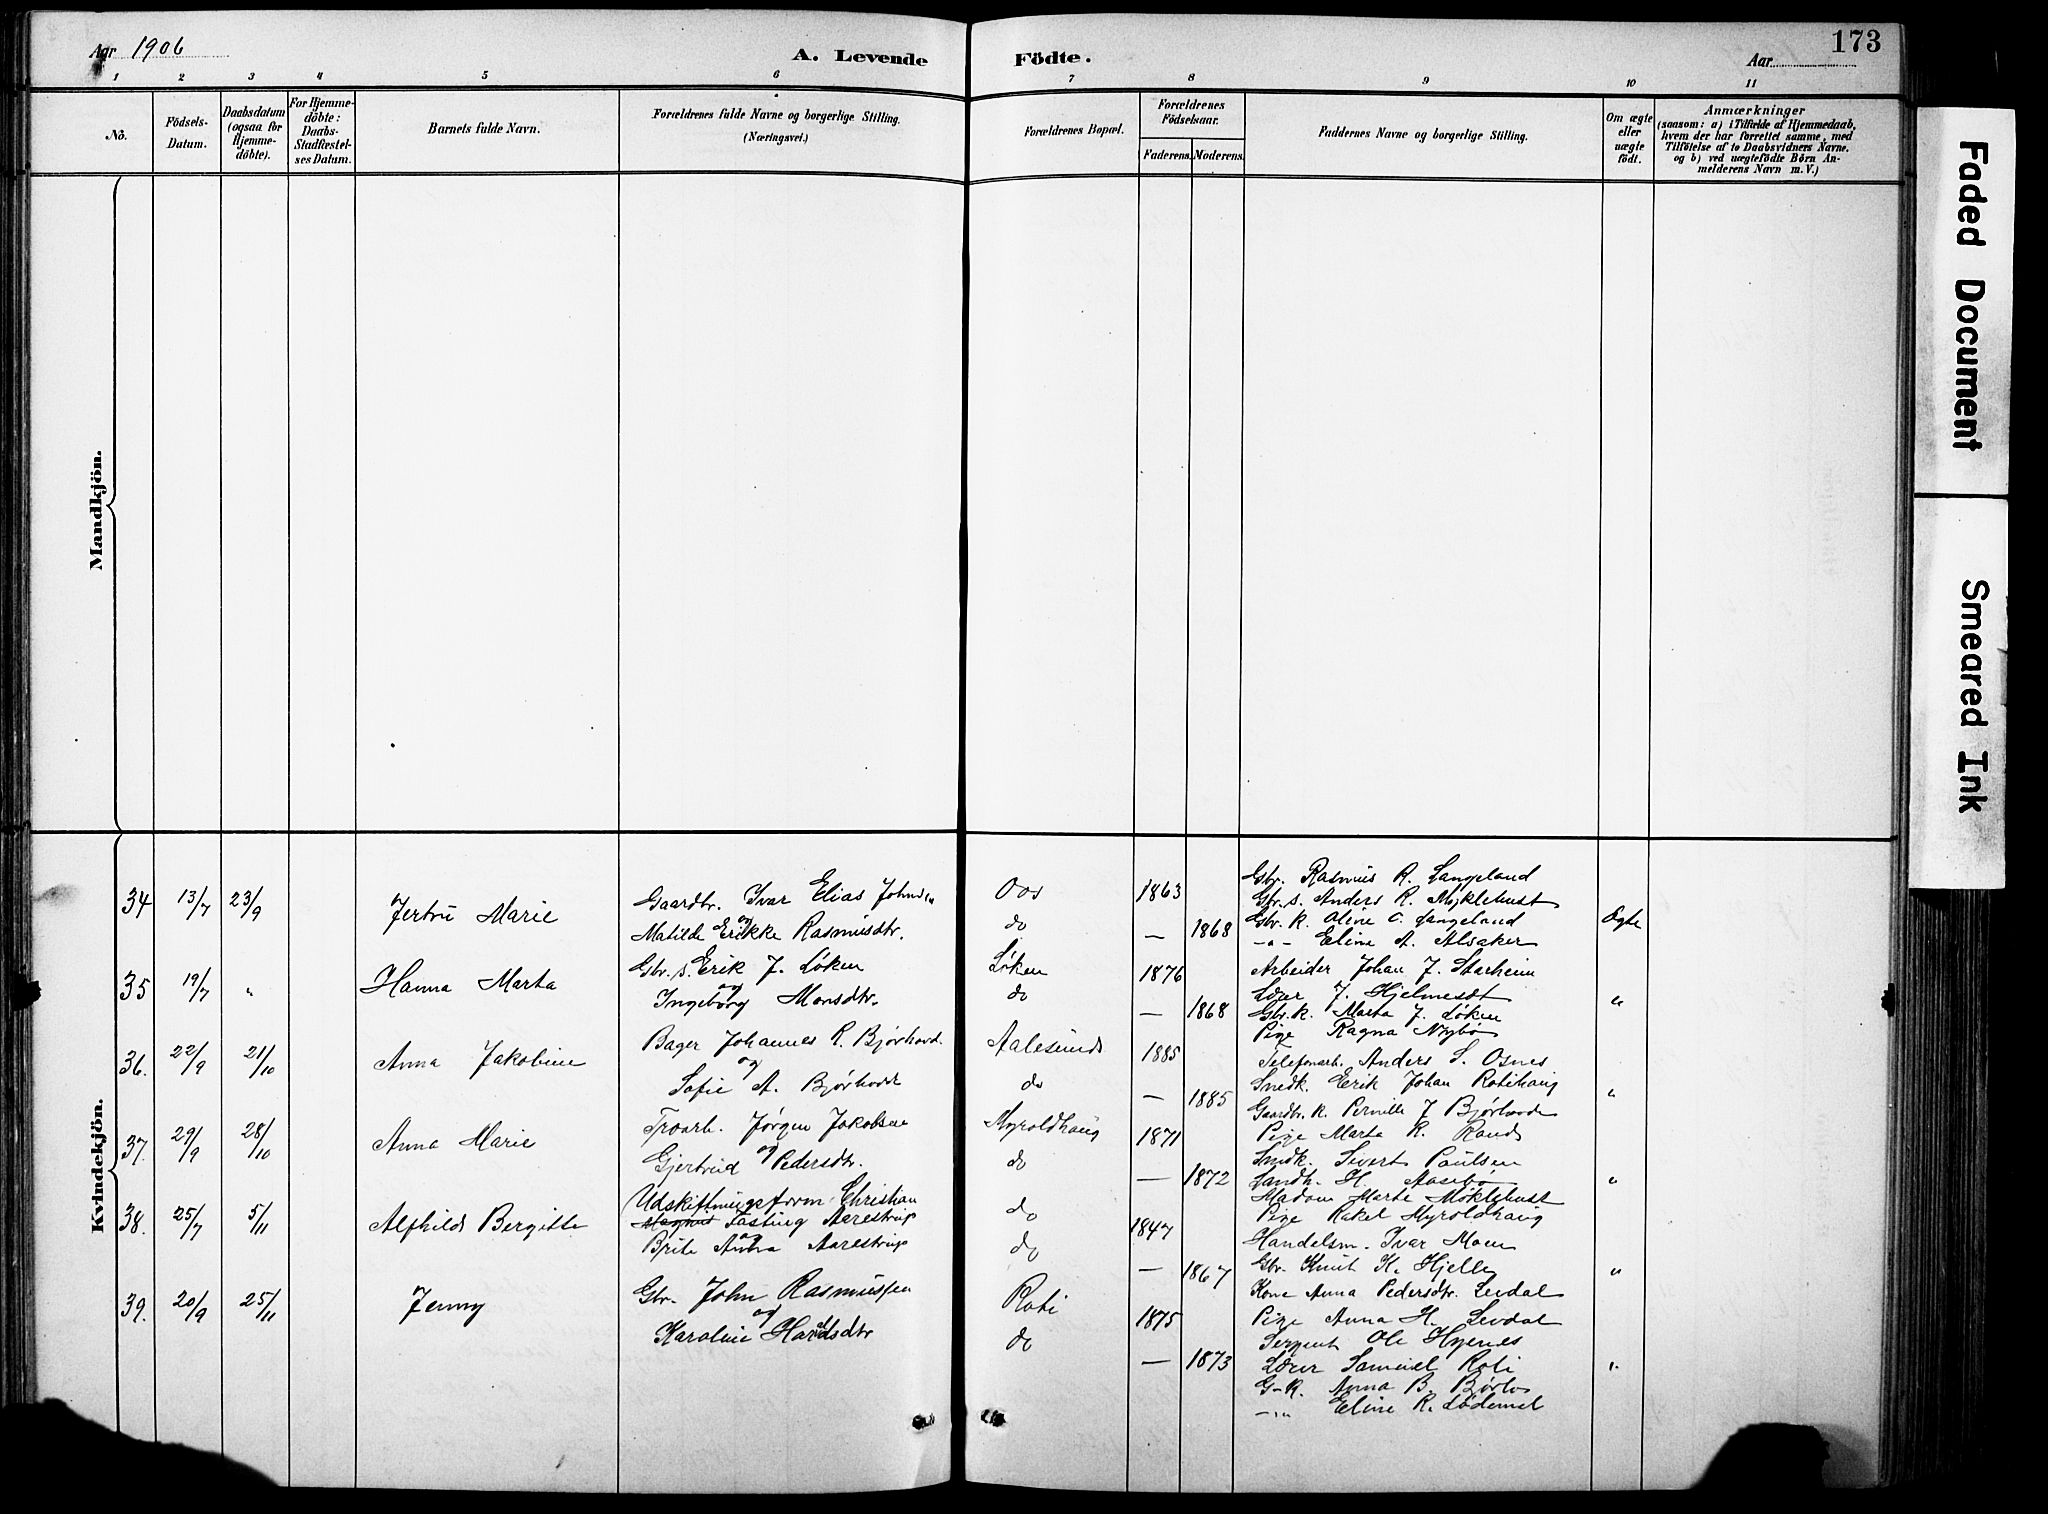 Aar 1906
A. Levende
Födte.
Aar
173
1 2 3 4 5 6 7 8 9 10 11
No.
Födsels-
Datum.
Daabsdatum
(ogsaa for
Hjemme-
döbte).
For Hjemme-
döbte:
Daabs-
Stadfæstel-
ses Datum.
Barnets fulde Navn.
Forældrenes fulde Navne og borgerlige Stilling.
(Næringsvei.)
Forældrenes Bopæl.
Forældrenes
Födselsaar.
Faderens. Moderens.
Faddernes Navne og borgerlige Stilling.
Om ægte
eller
uægte
født.
Anmærkninger
(saasom: a) i Tilfælde af Hjemmedaab,
hvem der har forrettet samme, med
Tilföielse af to Daabsvidners Navne.
og b) ved uægtefödte Börn An-
melderens Navn m. V.)
Mandkjön.
Kvindekjön.
34 13/7 23/9
Jertrü Marie
Gaardbr. Ivar Elias Johnsen
og
Matilde Erikke Rasmusdtr.
Oos
do
1863
— 1868
Gbr. Rasmus R. Langeland
Gbr. s. Anders R. Myklebust
Gbr. k. Oline O. Langeland
-"- Eline A. Alsaker
Ægte
35 19/7 "
Hanna Marta
Gbr. s. Erik J. Löken
og
Ingeborg Monsdtr.
Löken
do
1876
— 1868
Arbeider Johan J. Starheim
Lærer J. Hjelmeset
Gbr. k. Marta J. Løken
Pige Ragna Nybö
"
36. 22/9 21/10
Anna Jakobine
Bager Johannes R. Bjørhovd
og
Sofie A. Bjørhovd
Aalesund
do
1885
— 1885
Telefonarb. Anders S. Osnes
Snedk. Erik Johan Rotihaug
Gaardbr. k. Pernille J Bjørhovde
Pige Marta R. Rand
"
37. 29/9 28/10
Anna Marie
Jørgen Jakobsen
og
Gjertrud Pedersdtr.
Myroldhaug
do
1871
— 1872
Snedk. Sivert Paulsen
Landh. H. Aasebø
Madam Marte Møklebust
Pige Rakel Myroldhaug
"
38. 25/7 5/11
Alfhild Bergitte
Udskiftningsform. Christian
Magnus Fasting Aarestrup
og
Brite Anna Aarestrup
do
do
1847
— 1867
Handelsm. Ivar Moen
Gbr. Knut K. Hjelle
Kone Anna Pedersdtr. Levdal
Pige Anna H. Levdal
"
39. 20/9 25/11
Jenny
Gbr. John Rasmussen
og
Karoline Haraldsdtr
Roti
do
1875
— 1873
Sergent Ole Hjenes
Lærer Samuel Roti
G-k. Anna B. Bjørlo
-"- Eline R. Lødemel
"
Faded Document
Smeared Ink